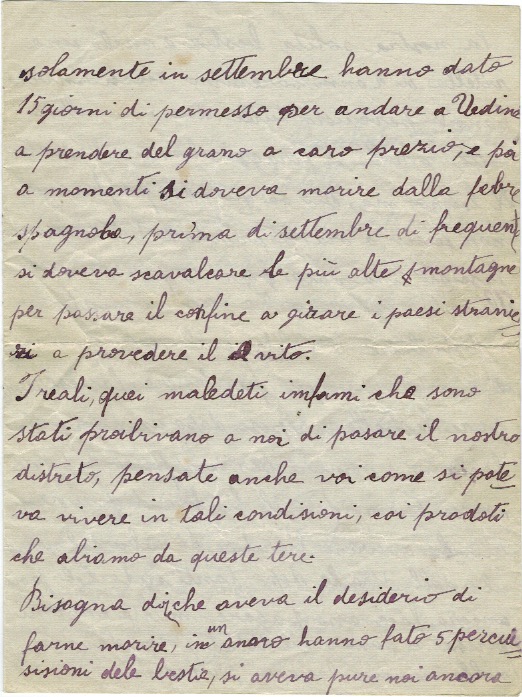 solamente in settembre hanno dato
15 giorni di permesso per andare a Vedine
a prendere del grano a caro prezio, e poi
a momenti si doveva morire dalla febre
spagnola, prima di settembre di frequent
si doveva scavalcare le più alte montagne
per passare il confine a girare i paesi stranie
ri a provedere il vito.
I reali, quei maledeti infami che sono
stati proibivano a noi di pasare il nostro
distreto, pensate anche voi come si pote
va vivere in tali condisioni, coi prodoti
che abiamo da queste tere.
Bisogna dir che aveva il desiderio di
farne morire, in un anaro hanno fato 5 percui
sisioni dele bestie, si aveva pure noi ancora